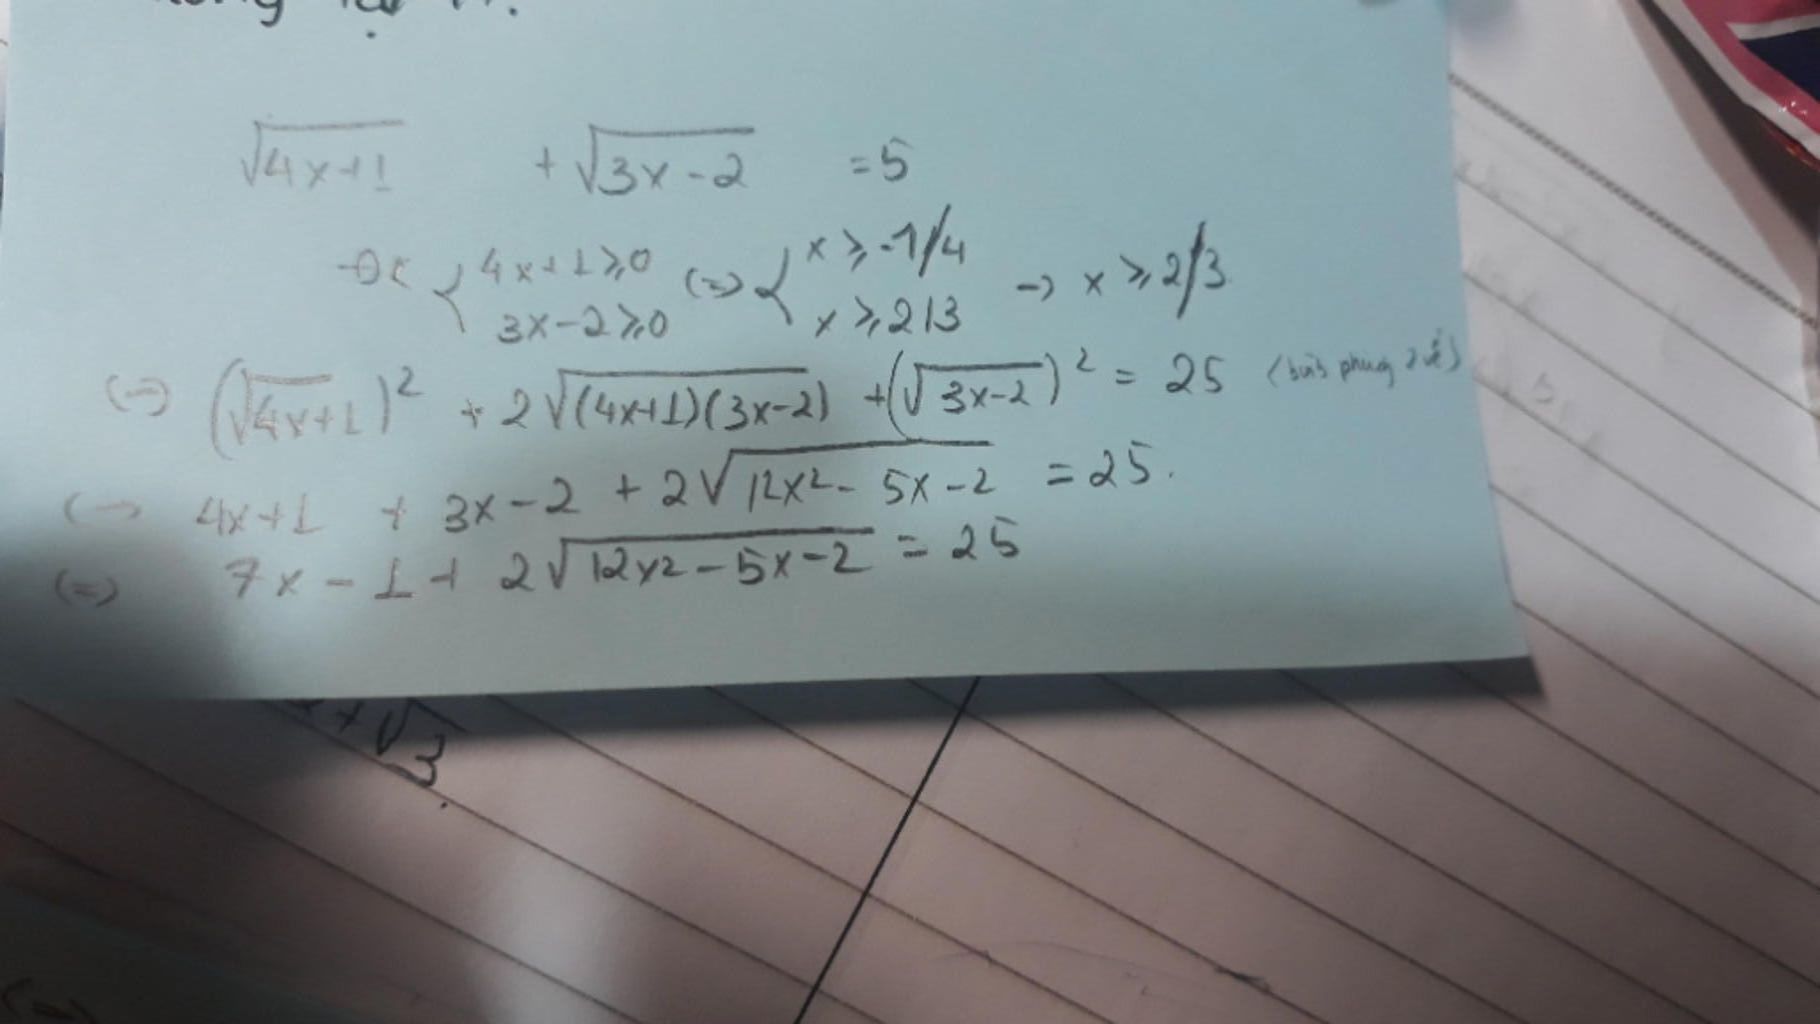 √(4x+1) + √(3x-2) = 5
ĐK { 4x+1 ≥ 0 (=> { x ≥ -1/4 → x ≥ 2/3
3x-2 ≥ 0 x ≥ 2/3
(=) (√(4x+1))² + 2√((4x+1)(3x-2)) + (√(3x-2))² = 25 (bình phương 2 vế)
(=) 4x+1 + 3x-2 + 2√(12x² - 5x-2) = 25.
(=) 7x - 1 + 2√(12x² - 5x-2) = 25
√3